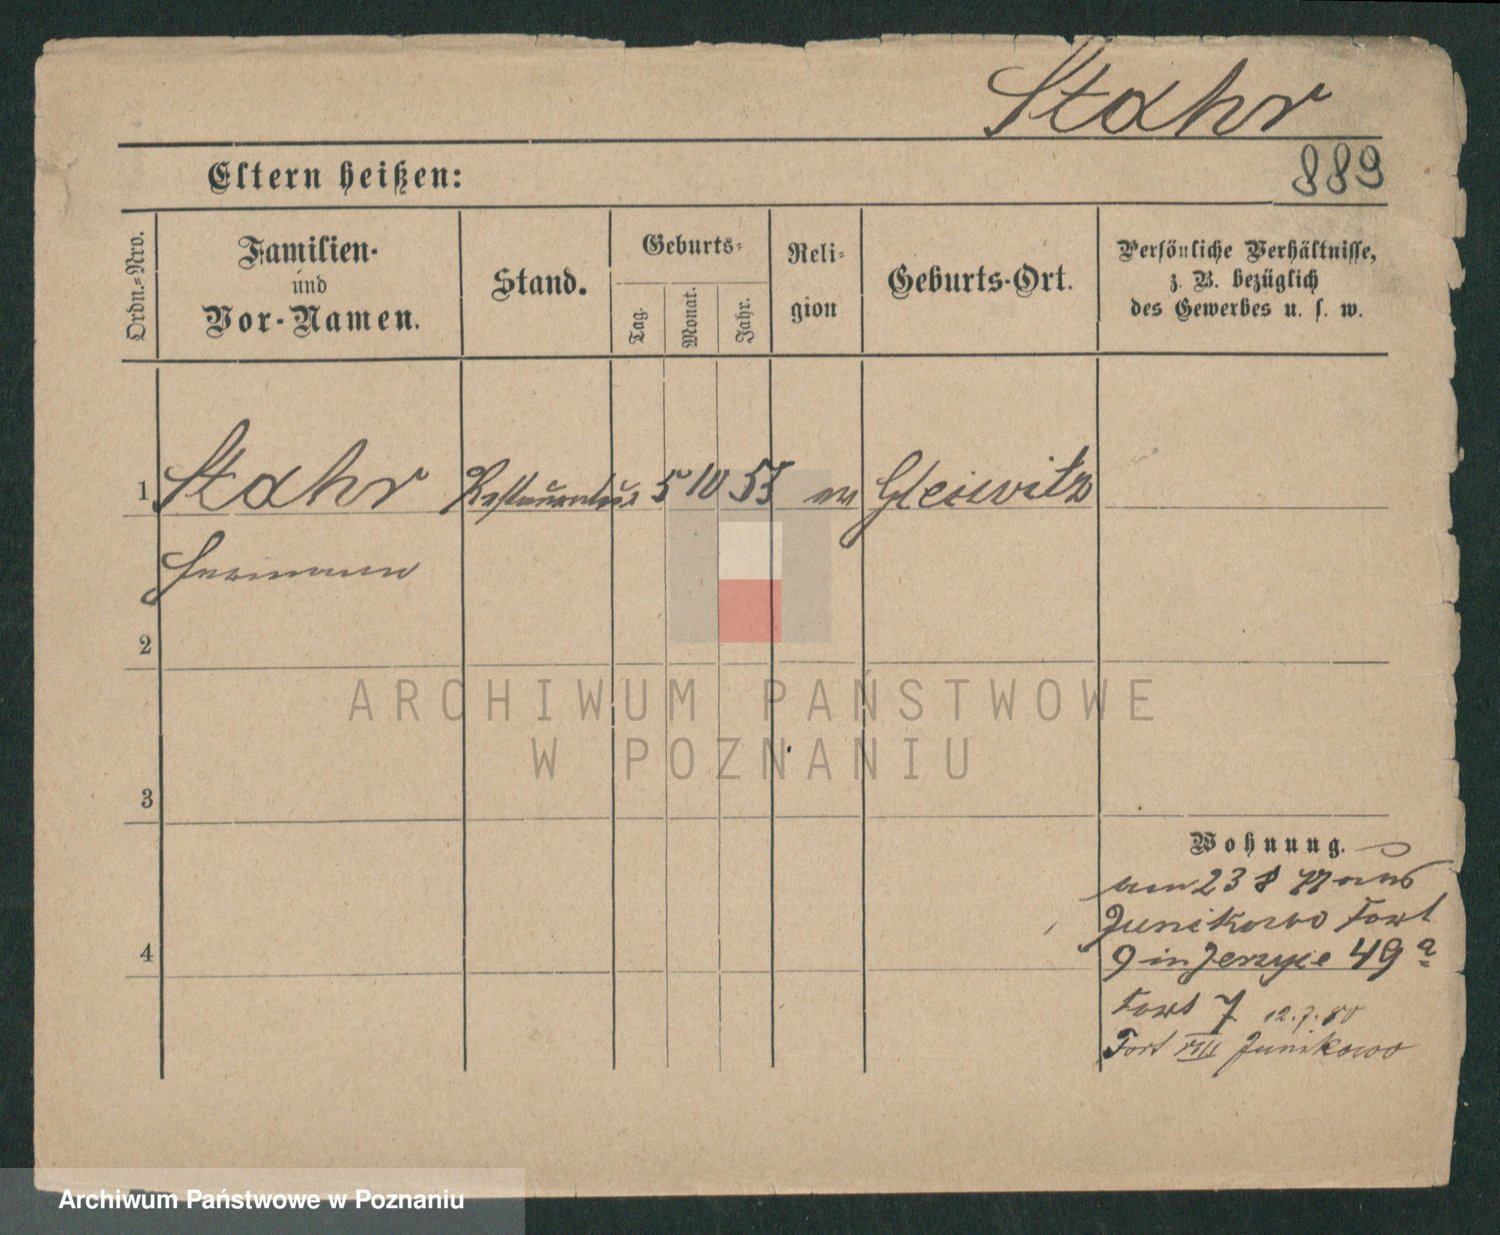 Stahr
889
Eltern heißen:
Ordn.-Nro.
Familien-
und
Vor-Namen.
Stand.
Geburts-
Tag.
Monat.
Jahr.
Reli-
gion
Geburts-Ort.
Persönliche Verhältnisse,
z. B. bezüglich
des Gewerbes u. s. w.
1 Stahr Restaurateur 5 10 55 ev Gleiwitz
Hermann
2
3
4
Wohnung.
am 23 8 aus
Junikowo Fort
9 in Jerzyce 49 a
Fort 7 12.7.80
Fort VIII Junikowo
ARCHIWUM PAŃSTWOWE
W POZNANIU
Archiwum Państwowe w Poznaniu